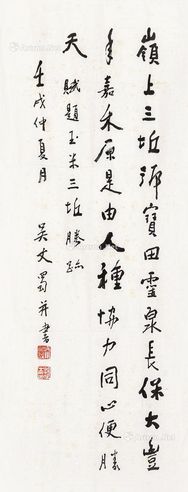 嶺上三坵號寶田靈泉長保大豐
年嘉禾原是由人種協力同心便勝
天 賦題玉米三坵勝跡
壬戌仲夏月 吳丈蜀并書